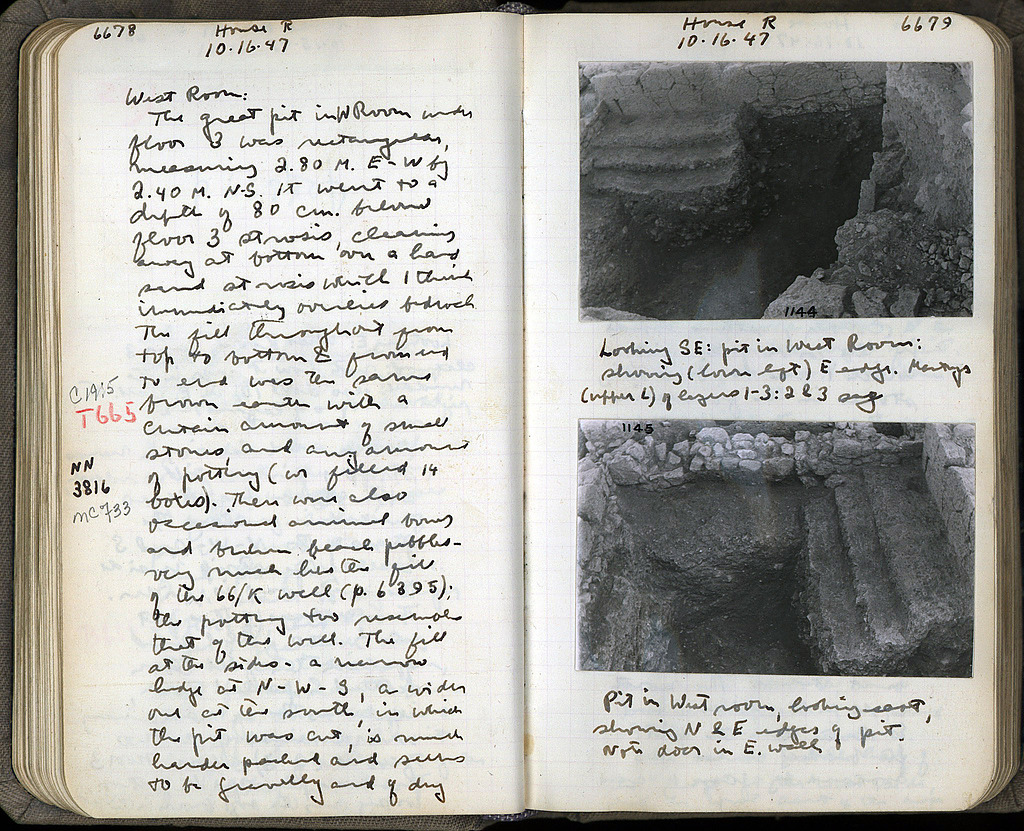 6678
House R
10.16.47
West Room:
The great pit in W Room under
floor 3 was rectangular,
measuring 2.80 M. E-W by
2.40 M. N-S. It went to a
depth of 80 cm. below
floor 3 strosis, clearing
away at bottom over a hard
sand strosis which I think
immediately overlies bedrock
The fill throughout from
top to bottom & from end
to end was the same
brown earth with a
certain amount of small
stones, and any amount
of pottery (we filled 14
boxes). There were also
occasional animal bones
and broken beach pebbles-
very much like the fill
of the 66/K well (p. 6395);
the pottery too resembles
that of the well. The fill
at the sides - a narrow
ledge at N-W-S, a wider
one at the south, in which
the pit was cut, is much
harder packed and seems
to be gravelly and of dry
C1915
T665
NN
3816
MC733
House R
10.16.47
6679
1144
Looking SE: pit in West Room:
showing (lower left) E edge.
(upper L) of layers 1-3: 2 & 3 sag
1145
Pit in West room, looking east,
showing N & E edges of pit.
Note door in E. wall